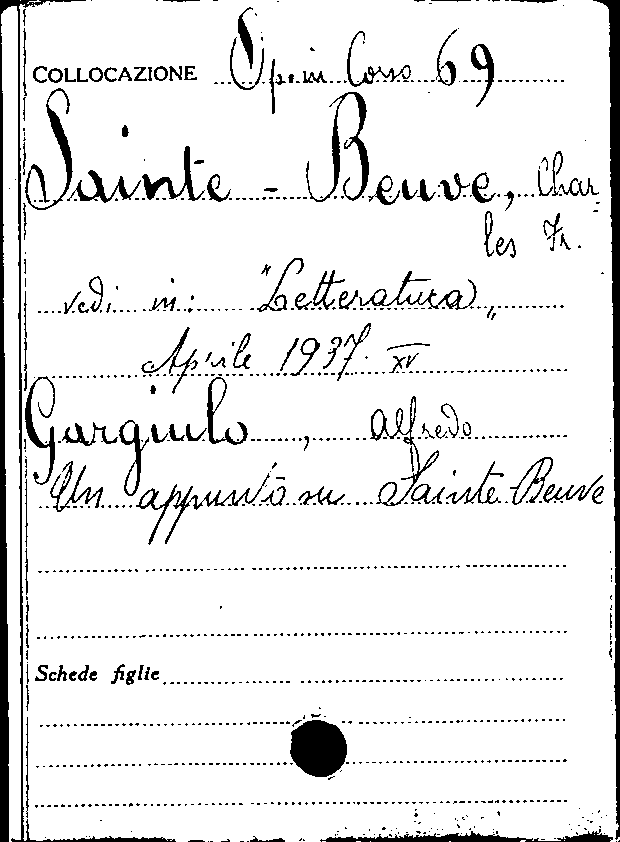 COLLOCAZIONE Op. in Corso 69
Sainte - Beuve, Char-
les Fr.
vedi in: "Letteratura"
Aprile 1937. XV
Gargiulo, Alfredo
Un appunto su Sainte-Beuve
Schede figlie